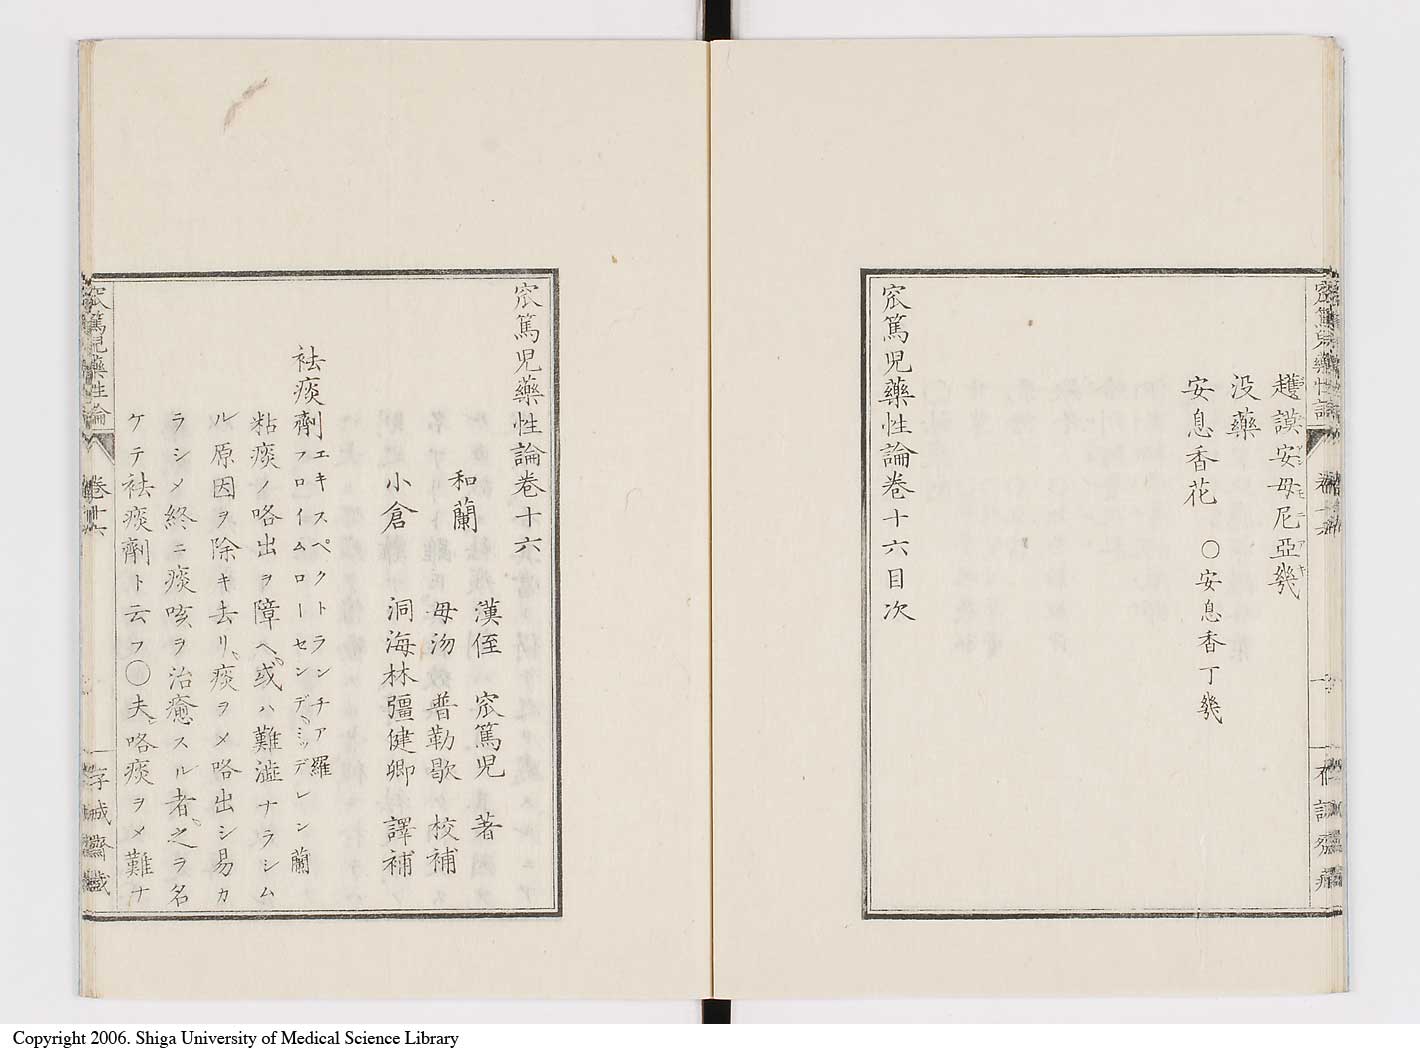 趨謨安母尼亞幾
没藥
安息香花　○安息香丁幾
窊篤児藥性論卷十六目次
窊篤児藥性論卷十六
和蘭　漢侄　窊篤児　著
毋汭　普勒歇　校補
小倉　洞海林彊健卿　譯補
袪痰劑 エキスペクトランチア羅
フロイムローセンデミッデレン蘭
粘痰ノ咯出ヲ障ヘ或ハ難澁ナラシム
ル原因ヲ除キ去リ痰ヲメ咯出シ易カ
ラシメ終ニ痰咳ヲ治癒スル者之ヲ名
ケテ袪痰劑ト云フ○夫咯痰ヲメ難ナ
窊篤児藥性論
卷十六
一
存誠齋藏
Copyright 2006. Shiga University of Medical Science Library